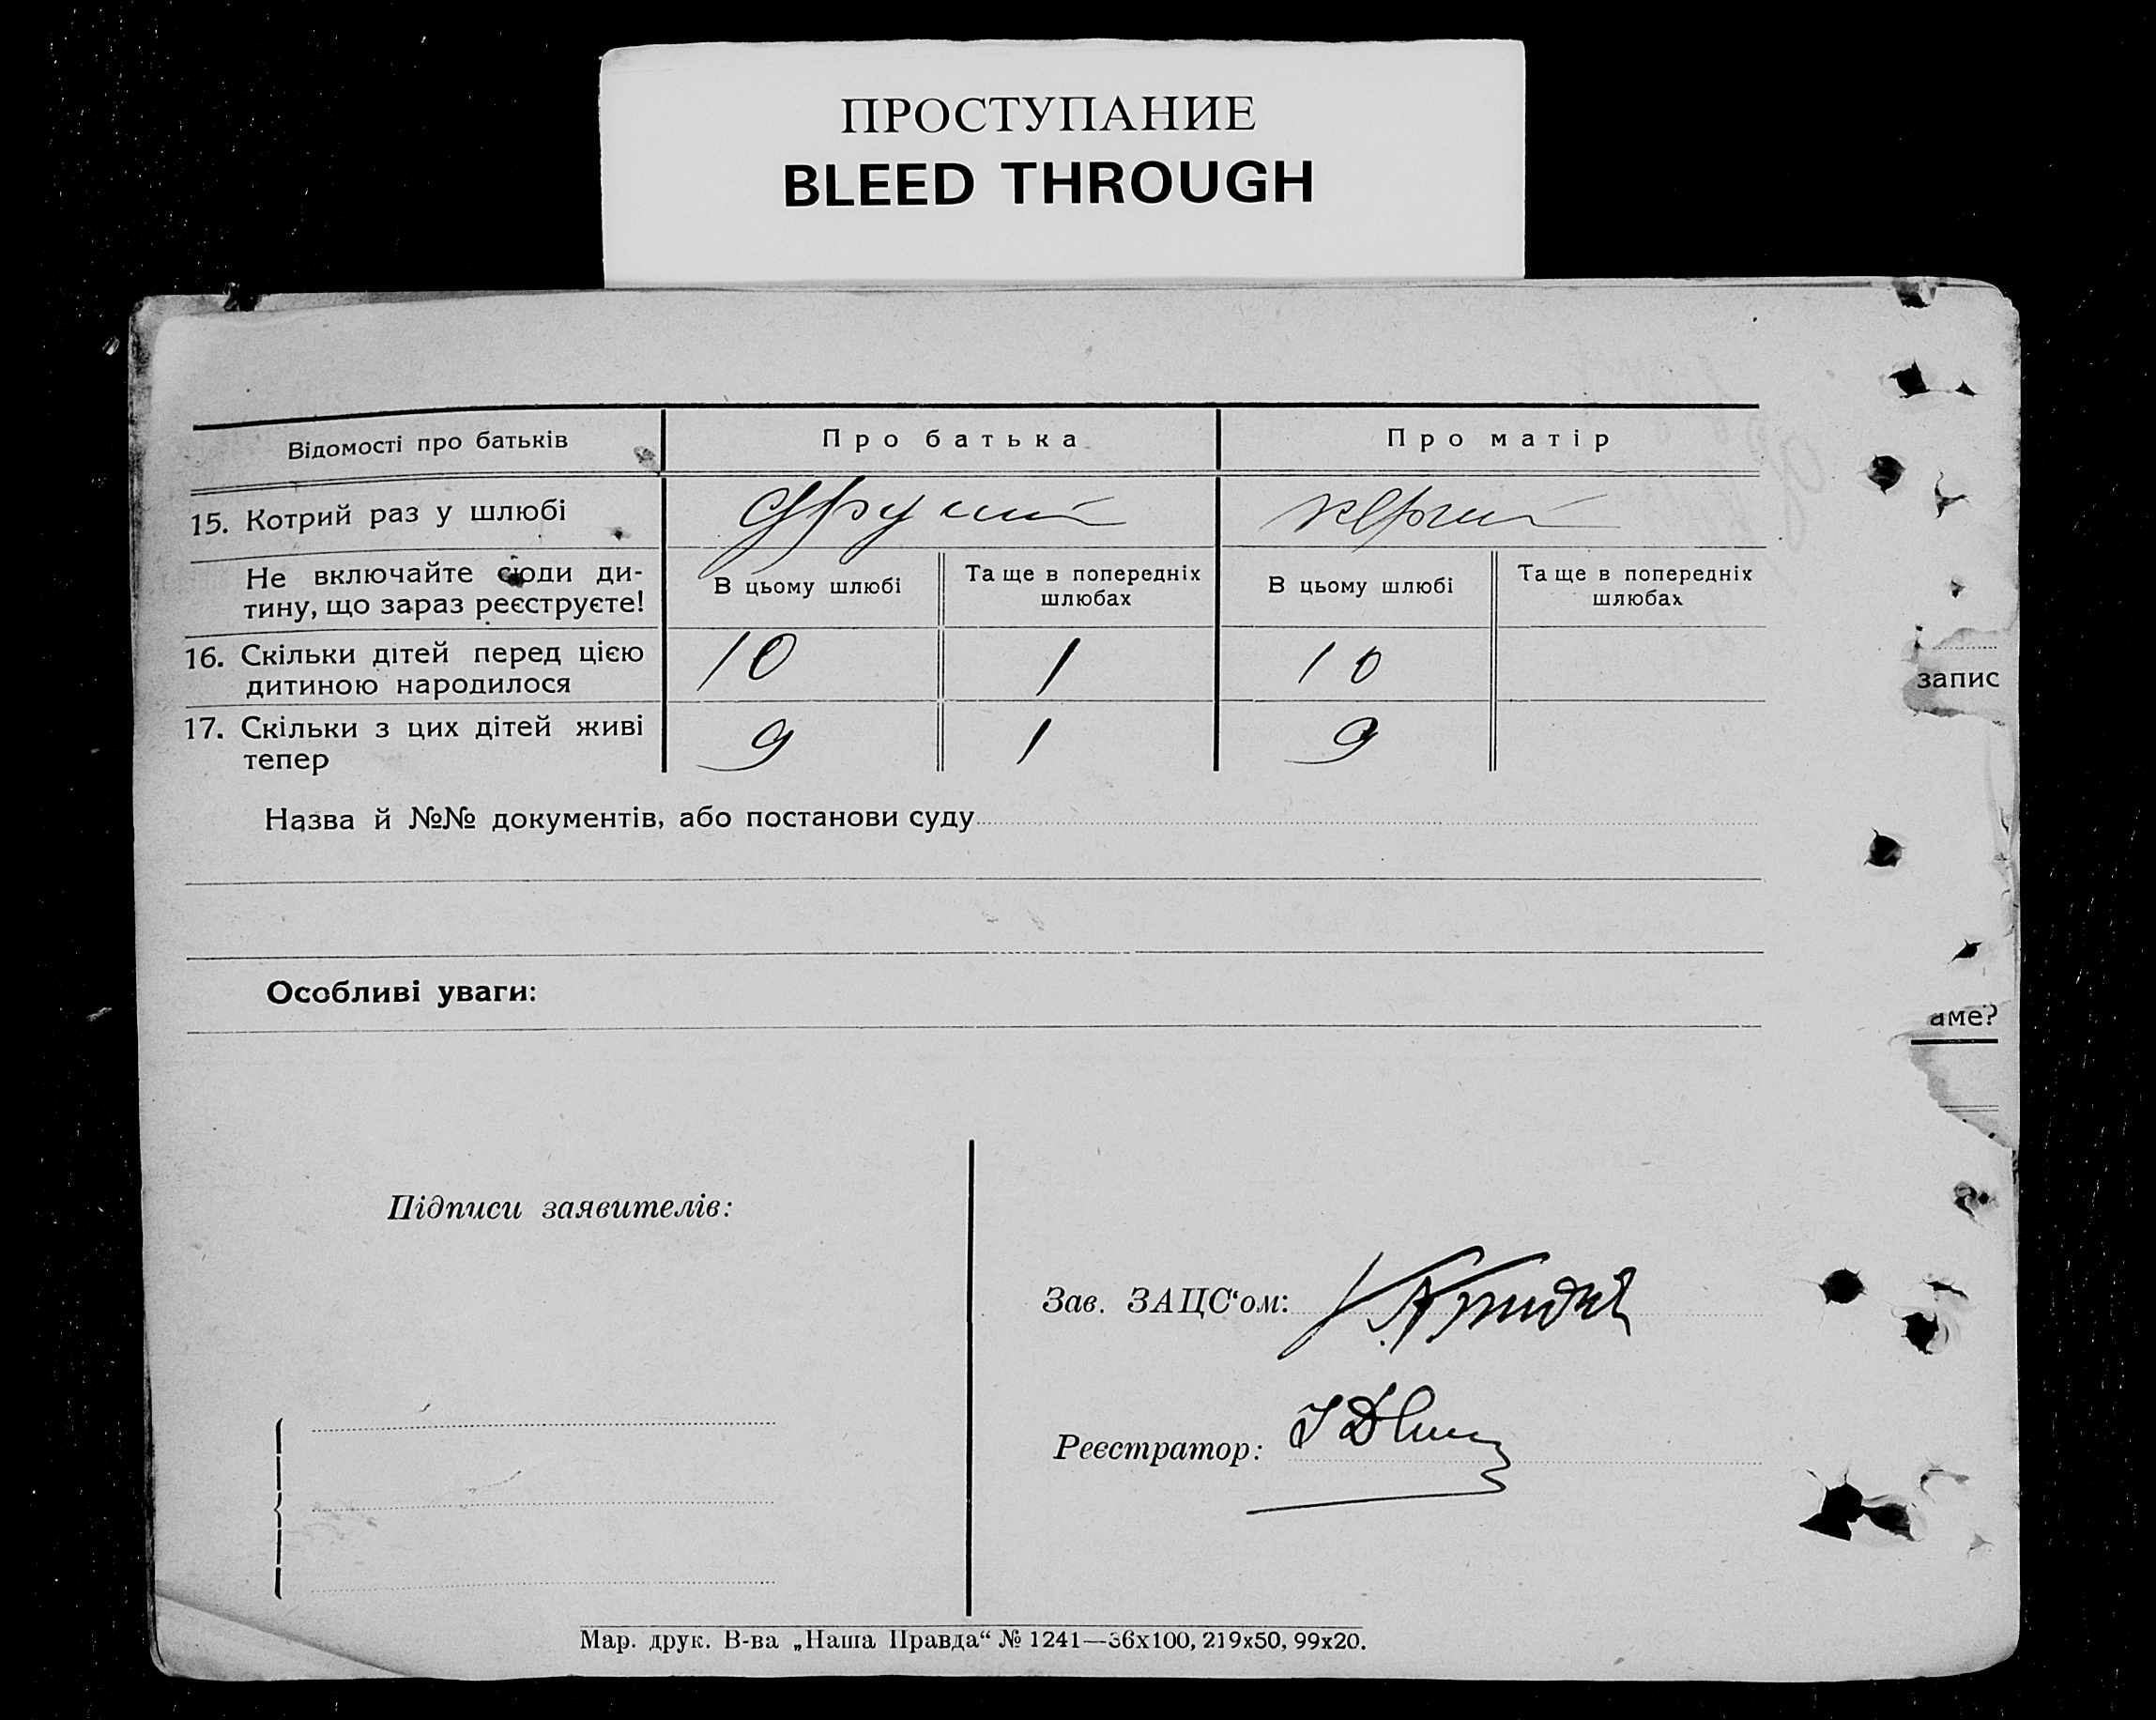 ПРОСТУПАНИЕ
BLEED THROUGH
Відомості про батьків
Про батька
Про матір
15. Котрий раз у шлюбі
другий
перший
Не включайте сюди ди-
тину, що зараз реєструєте!
В цьому шлюбі
Та ще в попередніх
шлюбах
В цьому шлюбі
Та ще в попередніх
шлюбах
16. Скільки дітей перед цією
дитиною народилося
10
1
10
запис
17. Скільки з цих дітей живі
тепер
9
1
9
Назва й №№ документів, або постанови суду
Особливі уваги:
аме?
Підписи заявителів:
Зав. ЗАЦС‘ом:
Реєстратор:
Мар. друк. В-ва „Наша Правда“ № 1241—36х100, 219х50, 99х20.